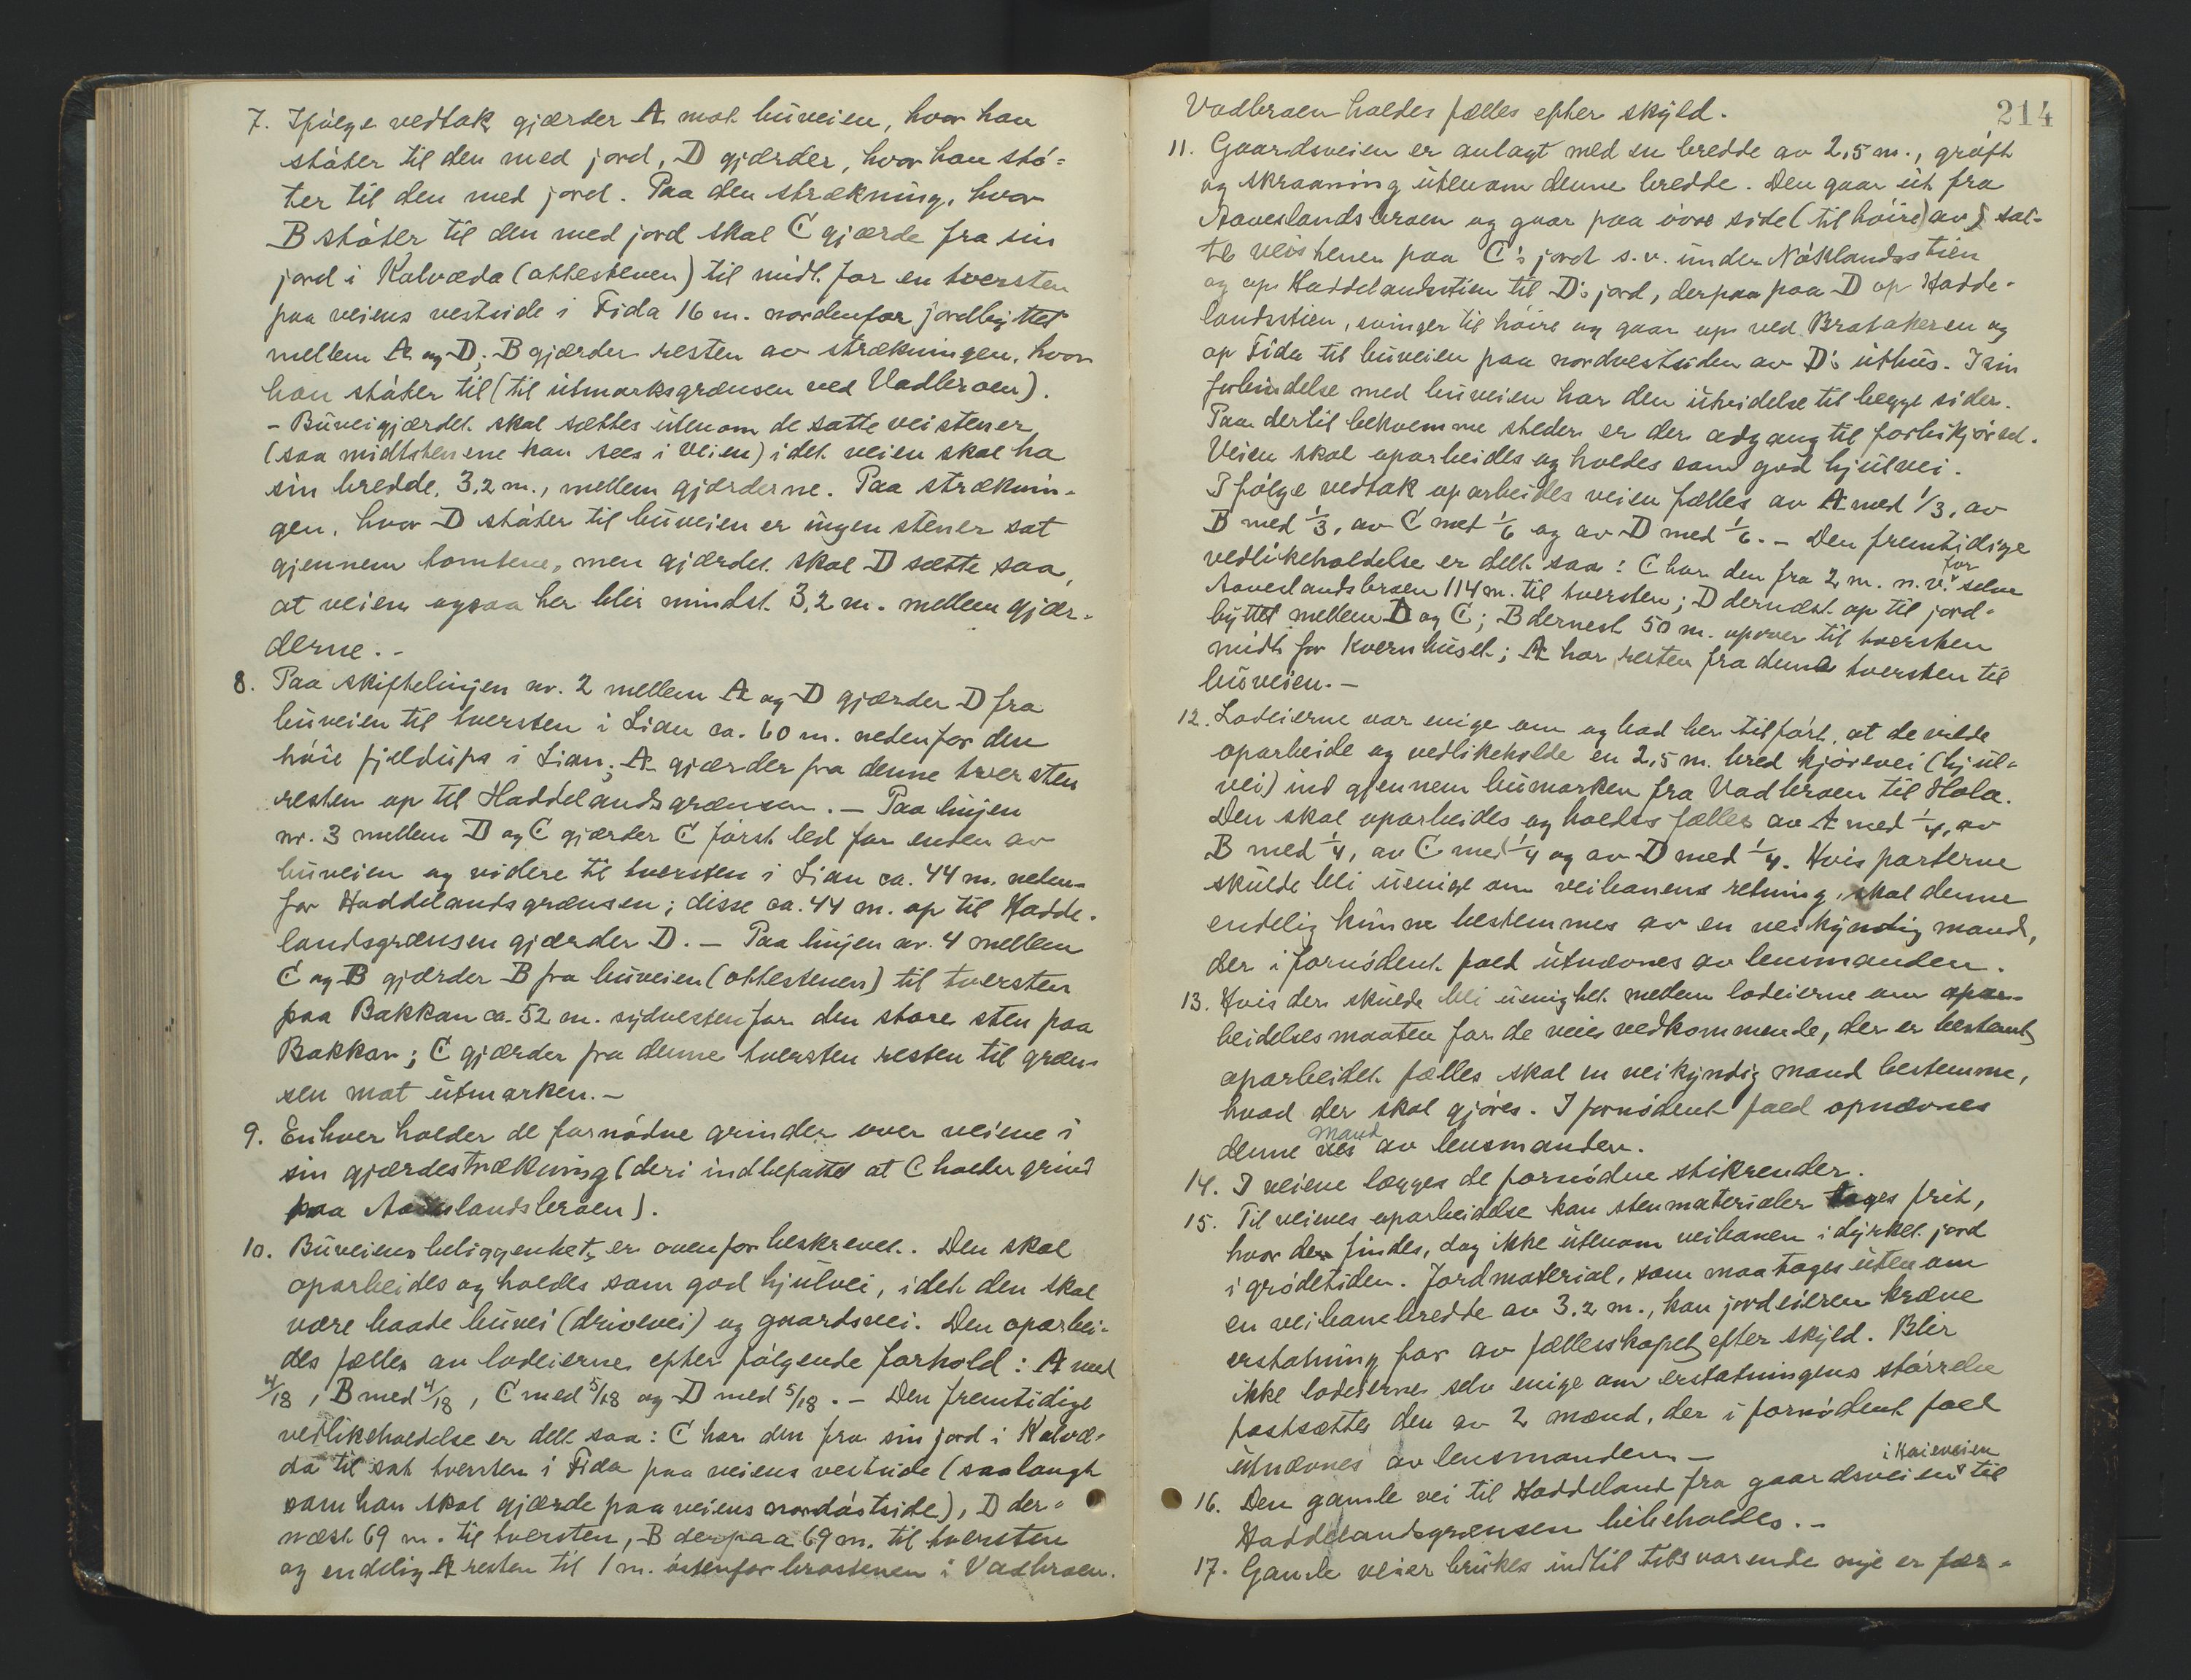 7. Ifølge vedtak gjærder A mot buveien, hvor han
støter til den med jord, D gjærder, hvor han stø-
ter til den med jord. Paa den strækning, hvor
B støter til den med jord skal C gjærde fra sin
jord i Kalvæda (ottestenen) til midt for en tversten
paa veiens vestside i Fida 16 m. nordenfor jordbyttet
mellem A og D; B gjærder resten av strækningen, hvor
han støter til (til utmarksgrænsen ved Vadbroen).
- Buveigjærdet skal sættes utenom de satte veistener
(saa midtstenene kan sees i veien) idet veien skal ha
sin bredde, 3,2 m., mellem gjærderne. Paa stræknin-
gen, hvor D støter til buveien er ingen stener sat
gjennem tomtene, men gjærdet skal D sætte saa,
at veien ogsaa her blir mindst 3,2 m. mellem gjær-
derne. -
8. Paa skiftelinjen nr. 2 mellem A og D gjærder D fra
buveien til tversten i Lian ca. 60 m. nedenfor den
høie fjeldups i Lian; A gjærder fra denne tversten
resten op til Haddelandsgrænsen. - Paa linjen
nr. 3 mellem D og C gjærder C først led for enden av
buveien og videre til tversten i Lian ca. 44 m. neden-
for Haddelandsgrænsen; disse ca. 44 m. op til Hadde-
landsgrænsen gjærder D. - Paa linjen nr. 4 mellem
C og B gjærder B fra buveien (ottestenen) til tversten
paa Bakkan ca. 52 m. sydvestenfor den store sten paa
Bakkan; C gjærder fra denne tversten resten til græn-
sen mot utmarken. -
9. Enhver holder de fornødne grinder over veiene i
sin gjærdestrækning (deri indbefattet at C holder grind
paa Aaveslandsbroen).
10. Buveiens beliggenhet er ovenfor beskrevet. Den skal
oparbeides og holdes som god hjulvei, idet den skal
være baade buvei (drivevei) og gaardsvei. Den oparbei-
des fælles av lodeierne efter følgende forhold: A med
4/18, B med 4/18, C med 5/18 og D med 5/18. - Den fremtidige
vedlikeholdelse er delt saa: C har den fra sin jord i Kalvæ-
da til sat tversten i Fida paa veiens vestside (saalangt
som han skal gjærde paa veiens nordøstside), D der-
næst 69 m. til tversten, B derpaa 69 m. til tversten
og endelig A resten til 1 m. østenfor brostenen i Vadbroen.
214
Vadbroen holdes fælles efter skyld.
11. Gaardsveien er anlagt med en bredde av 2,5 m., grøft
og skraaning utenom denne bredde. Den gaar ut fra
Aaveslandsbroen og gaar paa øvre side (til høire) av sat-
te veistener paa C's jord s.v. under Nøklandsstien
og op Haddelandsstien til D's jord, derpaa paa D op Hadde-
landsstien, svinger til høire og gaar op ved Bratakeren og
op Fida til buveien paa nordvestsiden av D's uthus. I sin
forbindelse med buveien har den utvidelse til begge sider.
Paa dertil bekvemme steder er der adgang til forbikjørsel.
Veien skal oparbeides og holdes som god hjulvei.
Ifølge vedtak oparbeides veien fælles av A med 1/3, av
B med 1/3, av C med 1/6 og av D med 1/6. - Den fremtidige
vedlikeholdelse er delt saa: C har den fra 2 m. n.v. for selve
Aaveslandsbroen 114 m. til tversten; D dernæst op til jord-
byttet mellem D og C; B dernest 50 m. opover til tversten
midt for Kvernhuset; A har resten fra denne tversten til
buveien. -
12. Lodeierne var enige om og bad her tilført, at de vilde
oparbeide og vedlikeholde en 2,5 m. bred kjørevei (hjul-
vei) ind gjennem bumarken fra Vadbroen til Hola.
Den skal oparbeides og holdes fælles av A med 1/4, av
B med 1/4, av C med 1/4 og av D med 1/4. Hvis parterne
skulde bli uenige om veibanens retning, skal denne
endelig kunne bestemmes av en veikyndig mand,
der i fornødent fald utnævnes av lensmanden.
13. Hvis der skulde bli uenighet mellem lodeierne om opar-
beidelsesmaaten for de veies vedkommende, der er bestemt
oparbeidet fælles skal en veikyndig mand bestemme,
hvad der skal gjøres. I fornødent fald opnævnes
denne mand av lensmanden.
14. I veiene lægges de fornødne stikrender.
15. Til veienes oparbeidelse kan stenmaterialer tages frit,
hvor den findes, dog ikke utenom veibanen i dyrket jord
i grødetiden. Jordmaterial, som maa tages utenom
en veibanebredde av 3.2 m., kan jordeieren kræve
erstatning for av fællesskapet efter skyld. Blir
ikke lodeierne selv enige om erstatningens størrelse
fastsættes den av 2 mænd, der i fornødent fald
utnævnes av lensmanden. -
16. Den gamle vei til Haddeland fra gaardsveien i Kaieveien til
Haddelandsgrænsen bibeholdes. -
17. Gamle veier brukes indtil tilsvarende nye er fær-